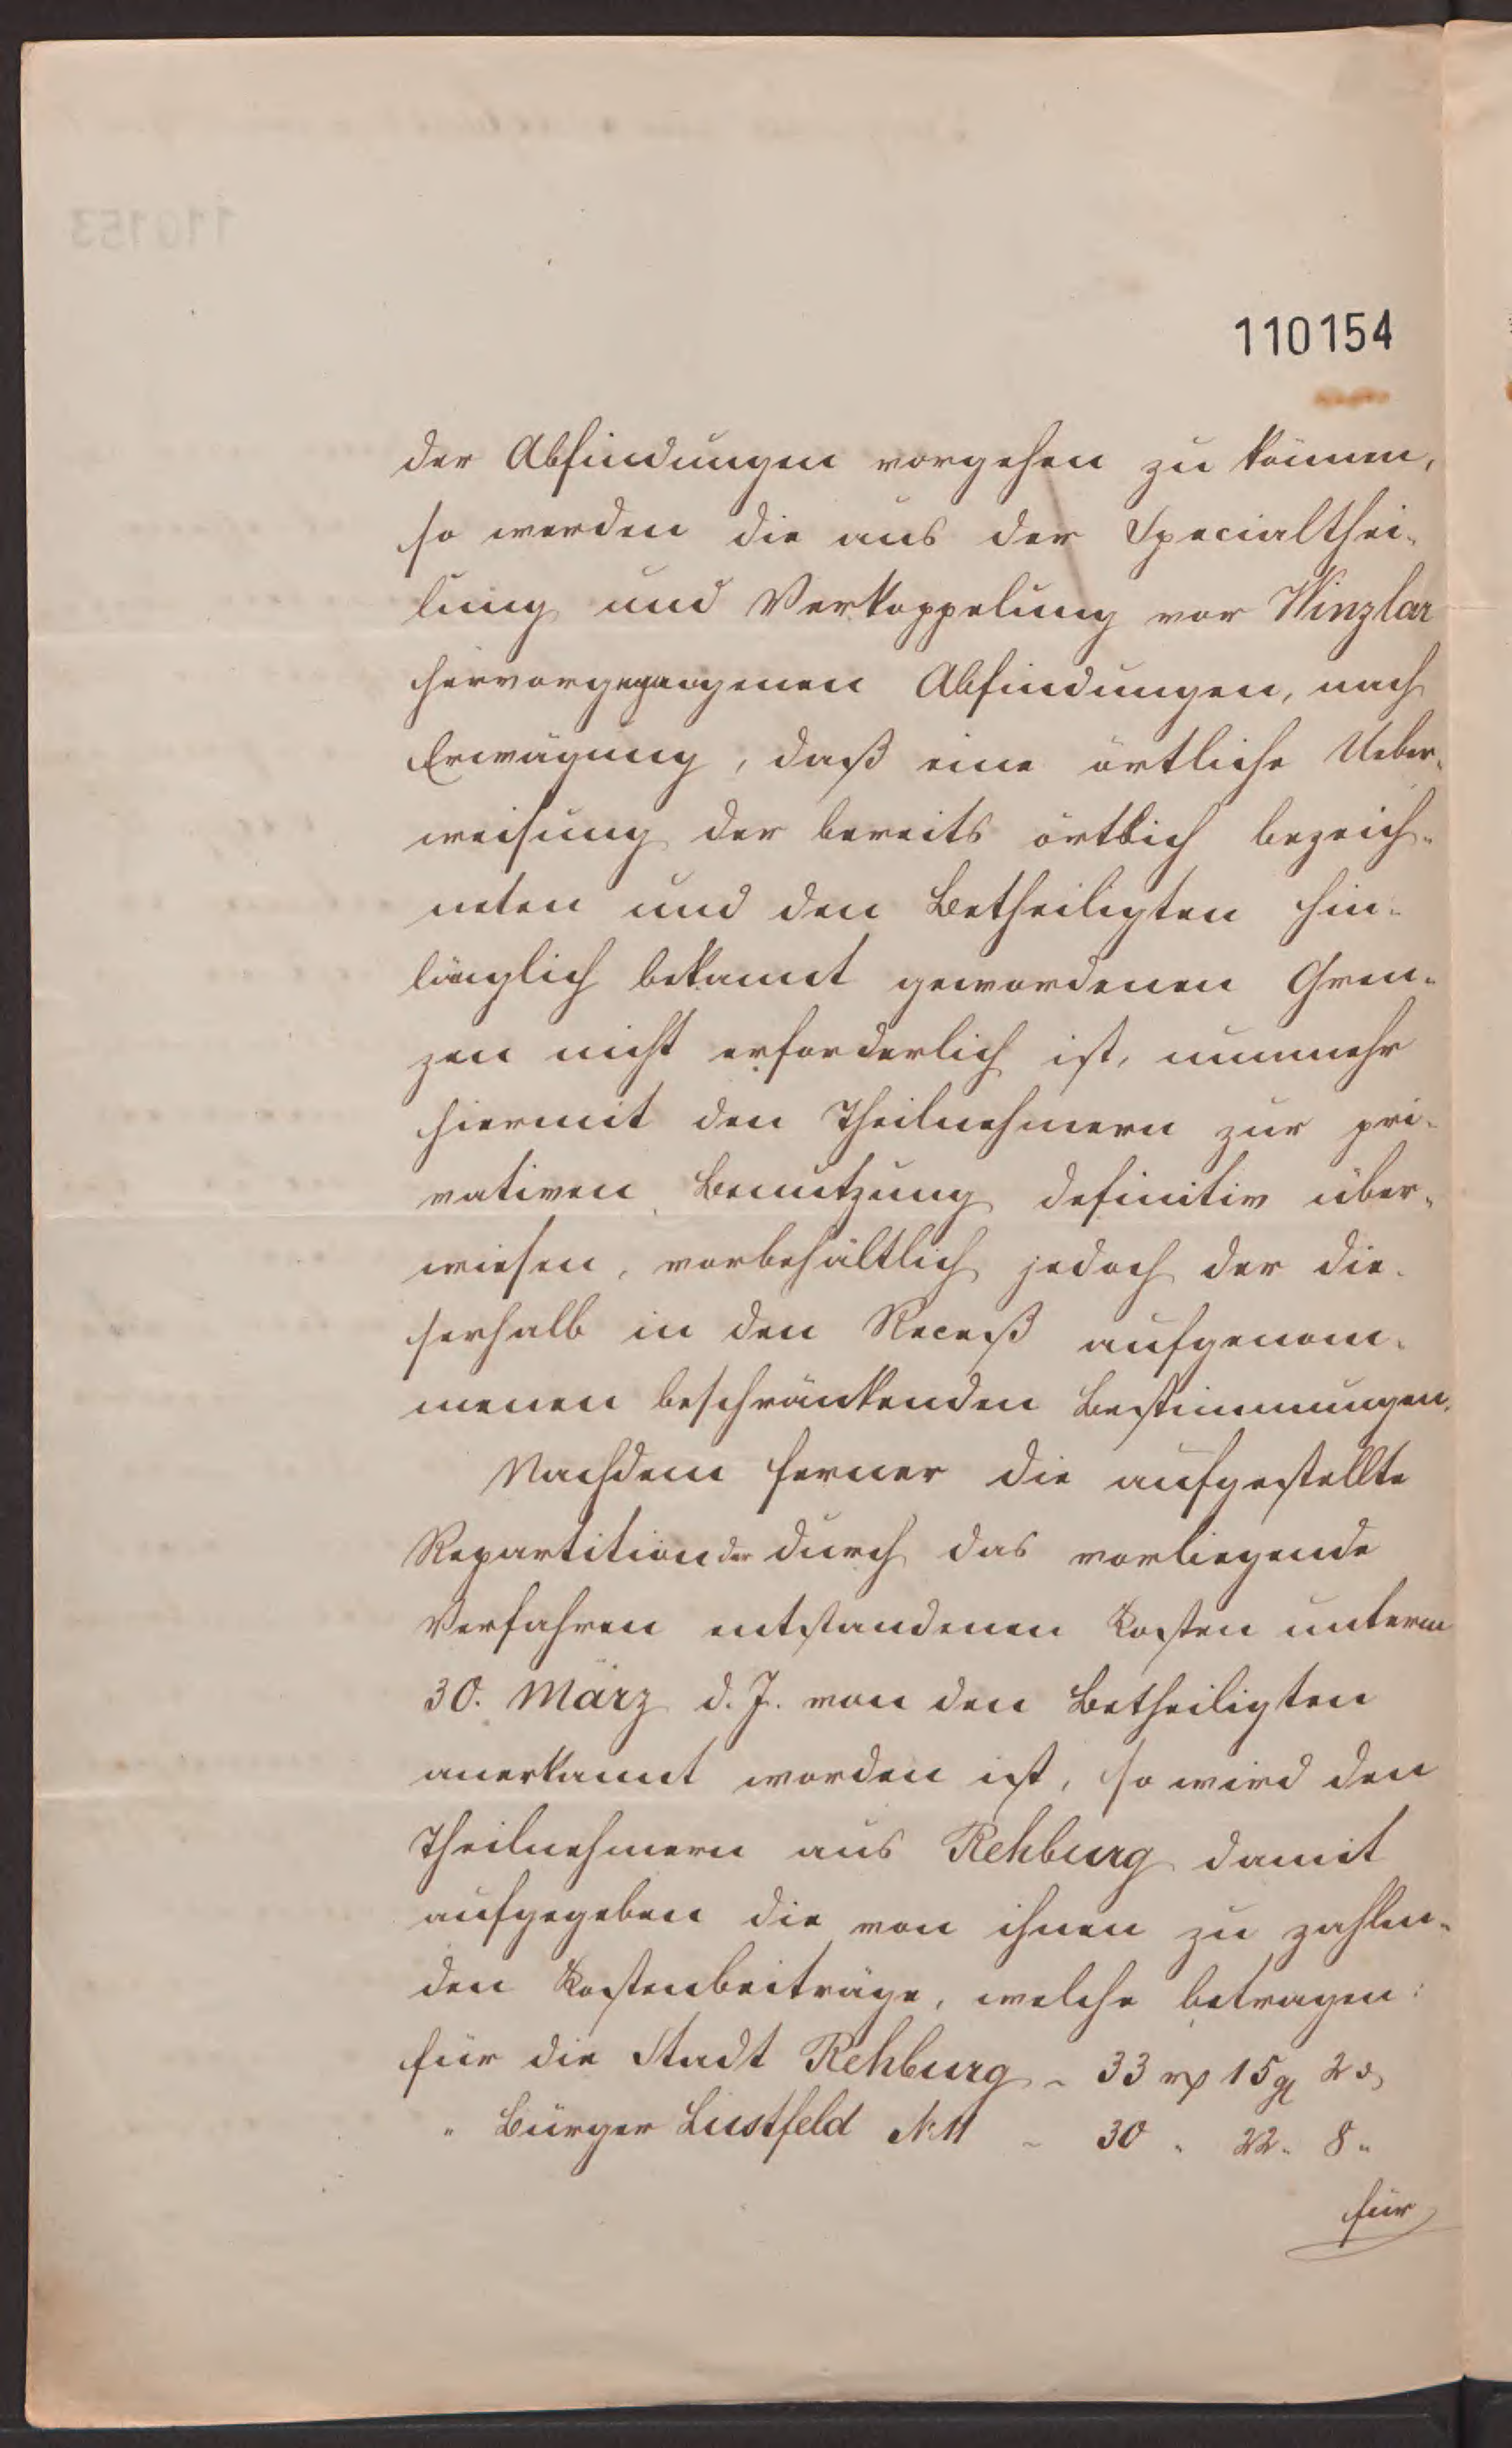 110154
der Abfindungen vorgehen zu können,
so werden die aus der Specialthei-
lung und Verkoppelung vor Winzlar
hervorgegangenen Abfindungen, nach
Erwägung, daß eine örtliche Ueber-
weisung der bereits örtlich bezeich-
neten und den Betheiligten hin-
länglich bekannt gewordenen Gren-
zen nicht erforderlich ist, nunmehr
hiermit den Theilnehmern zur pri-
vativen Benutzung definitiv über-
wiesen, vorbehältlich jedoch der die-
serhalb in den Receß aufgenom-
menen beschränkenden Bestimmungen.
Nachdem ferner die aufgestellte
Repartition der durch das vorliegende
Verfahren entstandenen Kosten unterm
30. März d. J. von den Betheiligten
anerkannt worden ist, so wird den
Theilnehmern aus Rehburg damit
aufgegeben die von ihnen zu zahlen-
den Kostenbeiträge, welche betragen:
für die Stadt Rehburg - 33 rp 15 g 2 d
" Bürger Lustfeld № 11 - 30 " 22 " 8 "
für
110153